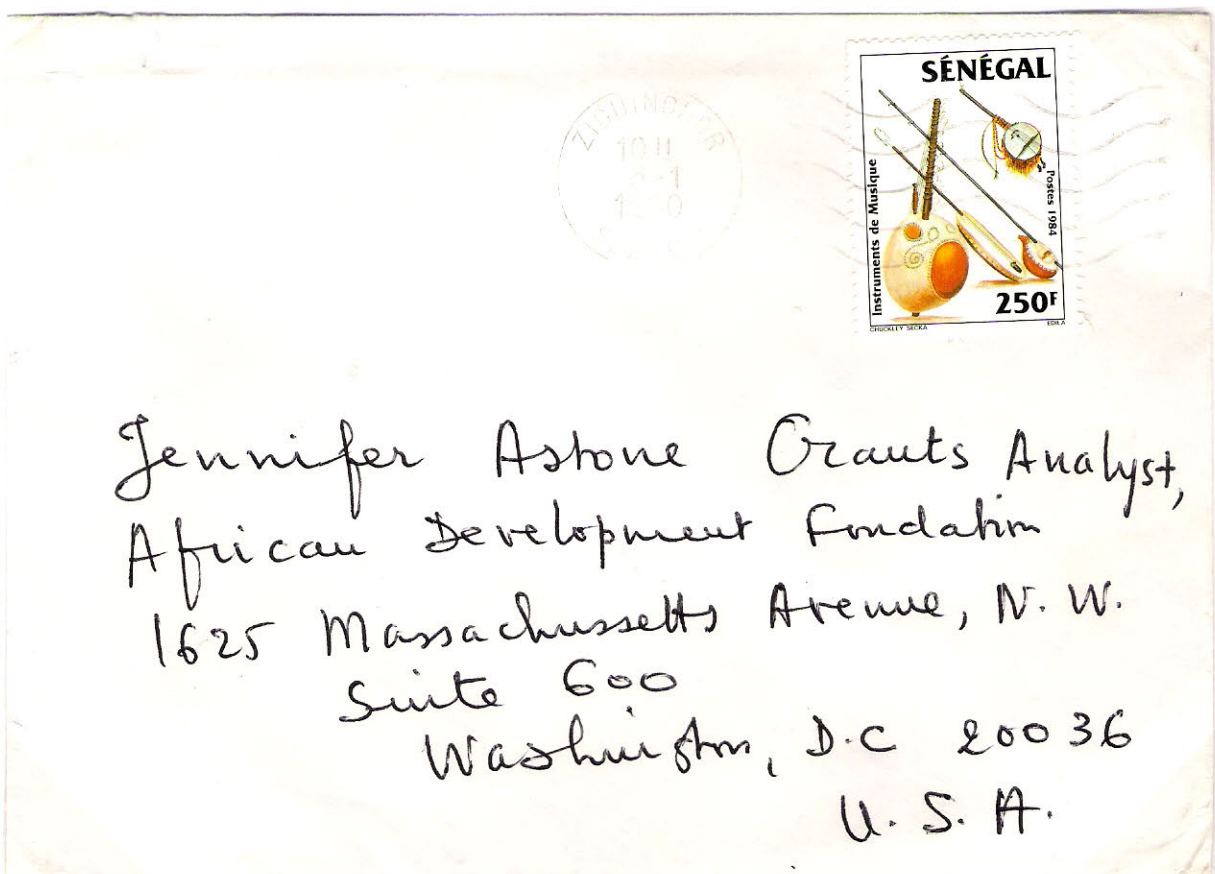 ZIGUINCHOR
10 H
SÉNÉGAL
Instruments de Musique
Postes 1984
250F
CHUCKLEY SECKA
EDILA
Jennifer Astone Grants Analyst,
African Development Fondation
1625 Massachussetts Avenue, N. W.
Suite 600
Washington, D.C 20036
U. S. A.